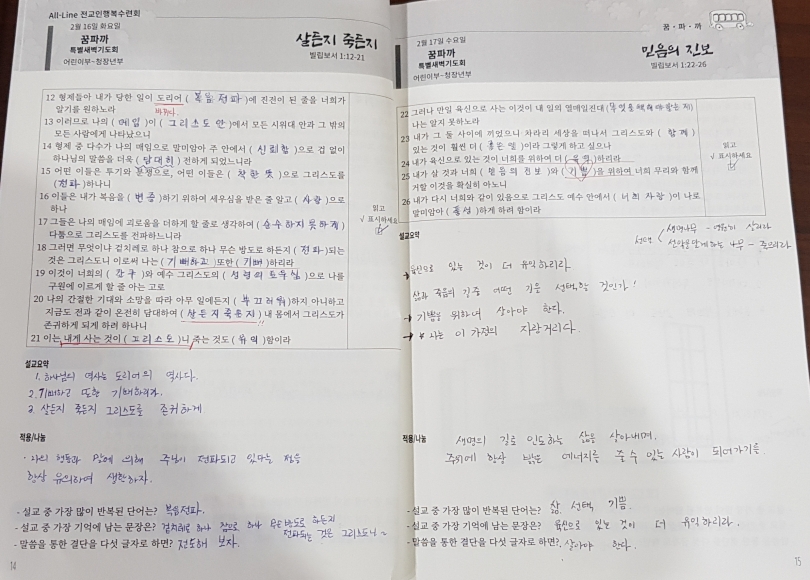 All-Line 전교인행복수련회
2월 16일 화요일
꿈파까
특별새벽기도회
어린이부~청장년부
살든지 죽든지
빌립보서 1:12-21
12 형제들아 내가 당한 일이 도리어 ( 복음 전파 )에 진전이 된 줄을 너희가
알기를 원하노라
13 이러므로 나의 ( 매임 )이 ( 그리스도 안 )에서 모든 시위대 안과 그 밖의
모든 사람에게 나타났으니
14 형제 중 다수가 나의 매임으로 말미암아 주 안에서 ( 신뢰함 )으로 겁 없이
하나님의 말씀을 더욱 ( 담대히 ) 전하게 되었느니라
15 어떤 이들은 투기와 분쟁으로, 어떤 이들은 ( 착한 뜻 )으로 그리스도를
( 전파 )하나니
16 이들은 내가 복음을 ( 변증 )하기 위하여 세우심을 받은 줄 알고 ( 사랑 )으로
하나
17 그들은 나의 매임에 괴로움을 더하게 할 줄로 생각하여 ( 순수하지 못하게 )
다툼으로 그리스도를 전파하느니라
18 그러면 무엇이냐 겉치레로 하나 참으로 하나 무슨 방도로 하든지 ( 전파 )되는
것은 그리스도니 이로써 나는 ( 기뻐하고 ) 또한 ( 기뻐 )하리라
19 이것이 너희의 ( 간구 )와 예수 그리스도의 ( 성령의 도우심 )으로 나를
구원에 이르게 할 줄 아는 고로
20 나의 간절한 기대와 소망을 따라 아무 일에든지 ( 부끄러워 )하지 아니하고
지금도 전과 같이 온전히 담대하여 ( 살든지 죽든지 ) 내 몸에서 그리스도가
존귀하게 되게 하려 하나니
21 이는 내게 사는 것이 ( 그리스도 )니 죽는 것도 ( 유익 )함이라
읽고
√ 표시하세요
설교요약
1. 하나님의 역사는 도리어의 역사다.
2. 기뻐하고 또한 기뻐하리라.
3. 살든지 죽든지 그리스도를 존귀하게
적용/나눔
· 나의 행동과 말에 의해 주님이 전파되고 있다는 점을
항상 유의하며 생활하자.
- 설교 중 가장 많이 반복된 단어는? 복음전파.
- 설교 중 가장 기억에 남는 문장은? 겉치레로 하나 참으로 하나 무슨 방도로 하든지
전파되는 것은 그리스도니~
- 말씀을 통한 결단을 다섯 글자로 하면? 전도해 보자.
14
꿈·파·까
2월 17일 수요일
꿈파까
특별새벽기도회
어린이부~청장년부
믿음의 진보
빌립보서 1:22-26
22 그러나 만일 육신으로 사는 이것이 내 일의 열매일진대 ( 무엇을 택해야 할는지 )
나는 알지 못하노라
23 내가 그 둘 사이에 끼었으니 차라리 세상을 떠나서 그리스도와 ( 함께 )
있는 것이 훨씬 더 ( 좋은 일 )이라 그렇게 하고 싶으나
24 내가 육신으로 있는 것이 너희를 위하여 더 ( 유익 )하리라
25 내가 살 것과 너희 ( 믿음의 진보 )와 ( 기쁨 )을 위하여 너희 무리와 함께
거할 이것을 확실히 아노니
26 내가 다시 너희와 같이 있음으로 그리스도 예수 안에서 ( 너희 자랑 )이 나로
말미암아 ( 풍성 )하게 하려 함이라
읽고
√ 표시하세요
설교요약
선택
생명나무 - 영원히 살리라
선악을 알게하는 나무 - 죽으리라
육신으로 있는 것이 더 유익하리라.
삶과 죽음의 길중 어떤 길을 선택할 것인가!
→ 기쁨을 위하여 살아야 한다.
→ * 나는 이 가정의 자랑거리다.
적용/나눔
생명의 길로 인도하는 삶을 살아내며,
주위에 항상 밝은 에너지를 줄 수 있는 사람이 되어가기를.
- 설교 중 가장 많이 반복된 단어는? 삶, 선택, 기쁨.
- 설교 중 가장 기억에 남는 문장은? 육신으로 있는 것이 더 유익하리라.
- 말씀을 통한 결단을 다섯 글자로 하면? 살아야 한다.
15